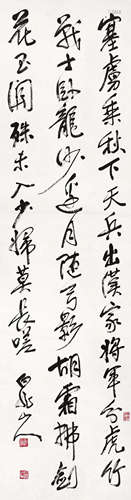 塞虜乘秋下天兵出漢家將軍分虎竹
戰士臥龍沙邊月隨弓影胡霜拂劍
花玉關殊未入少婦莫長嗟